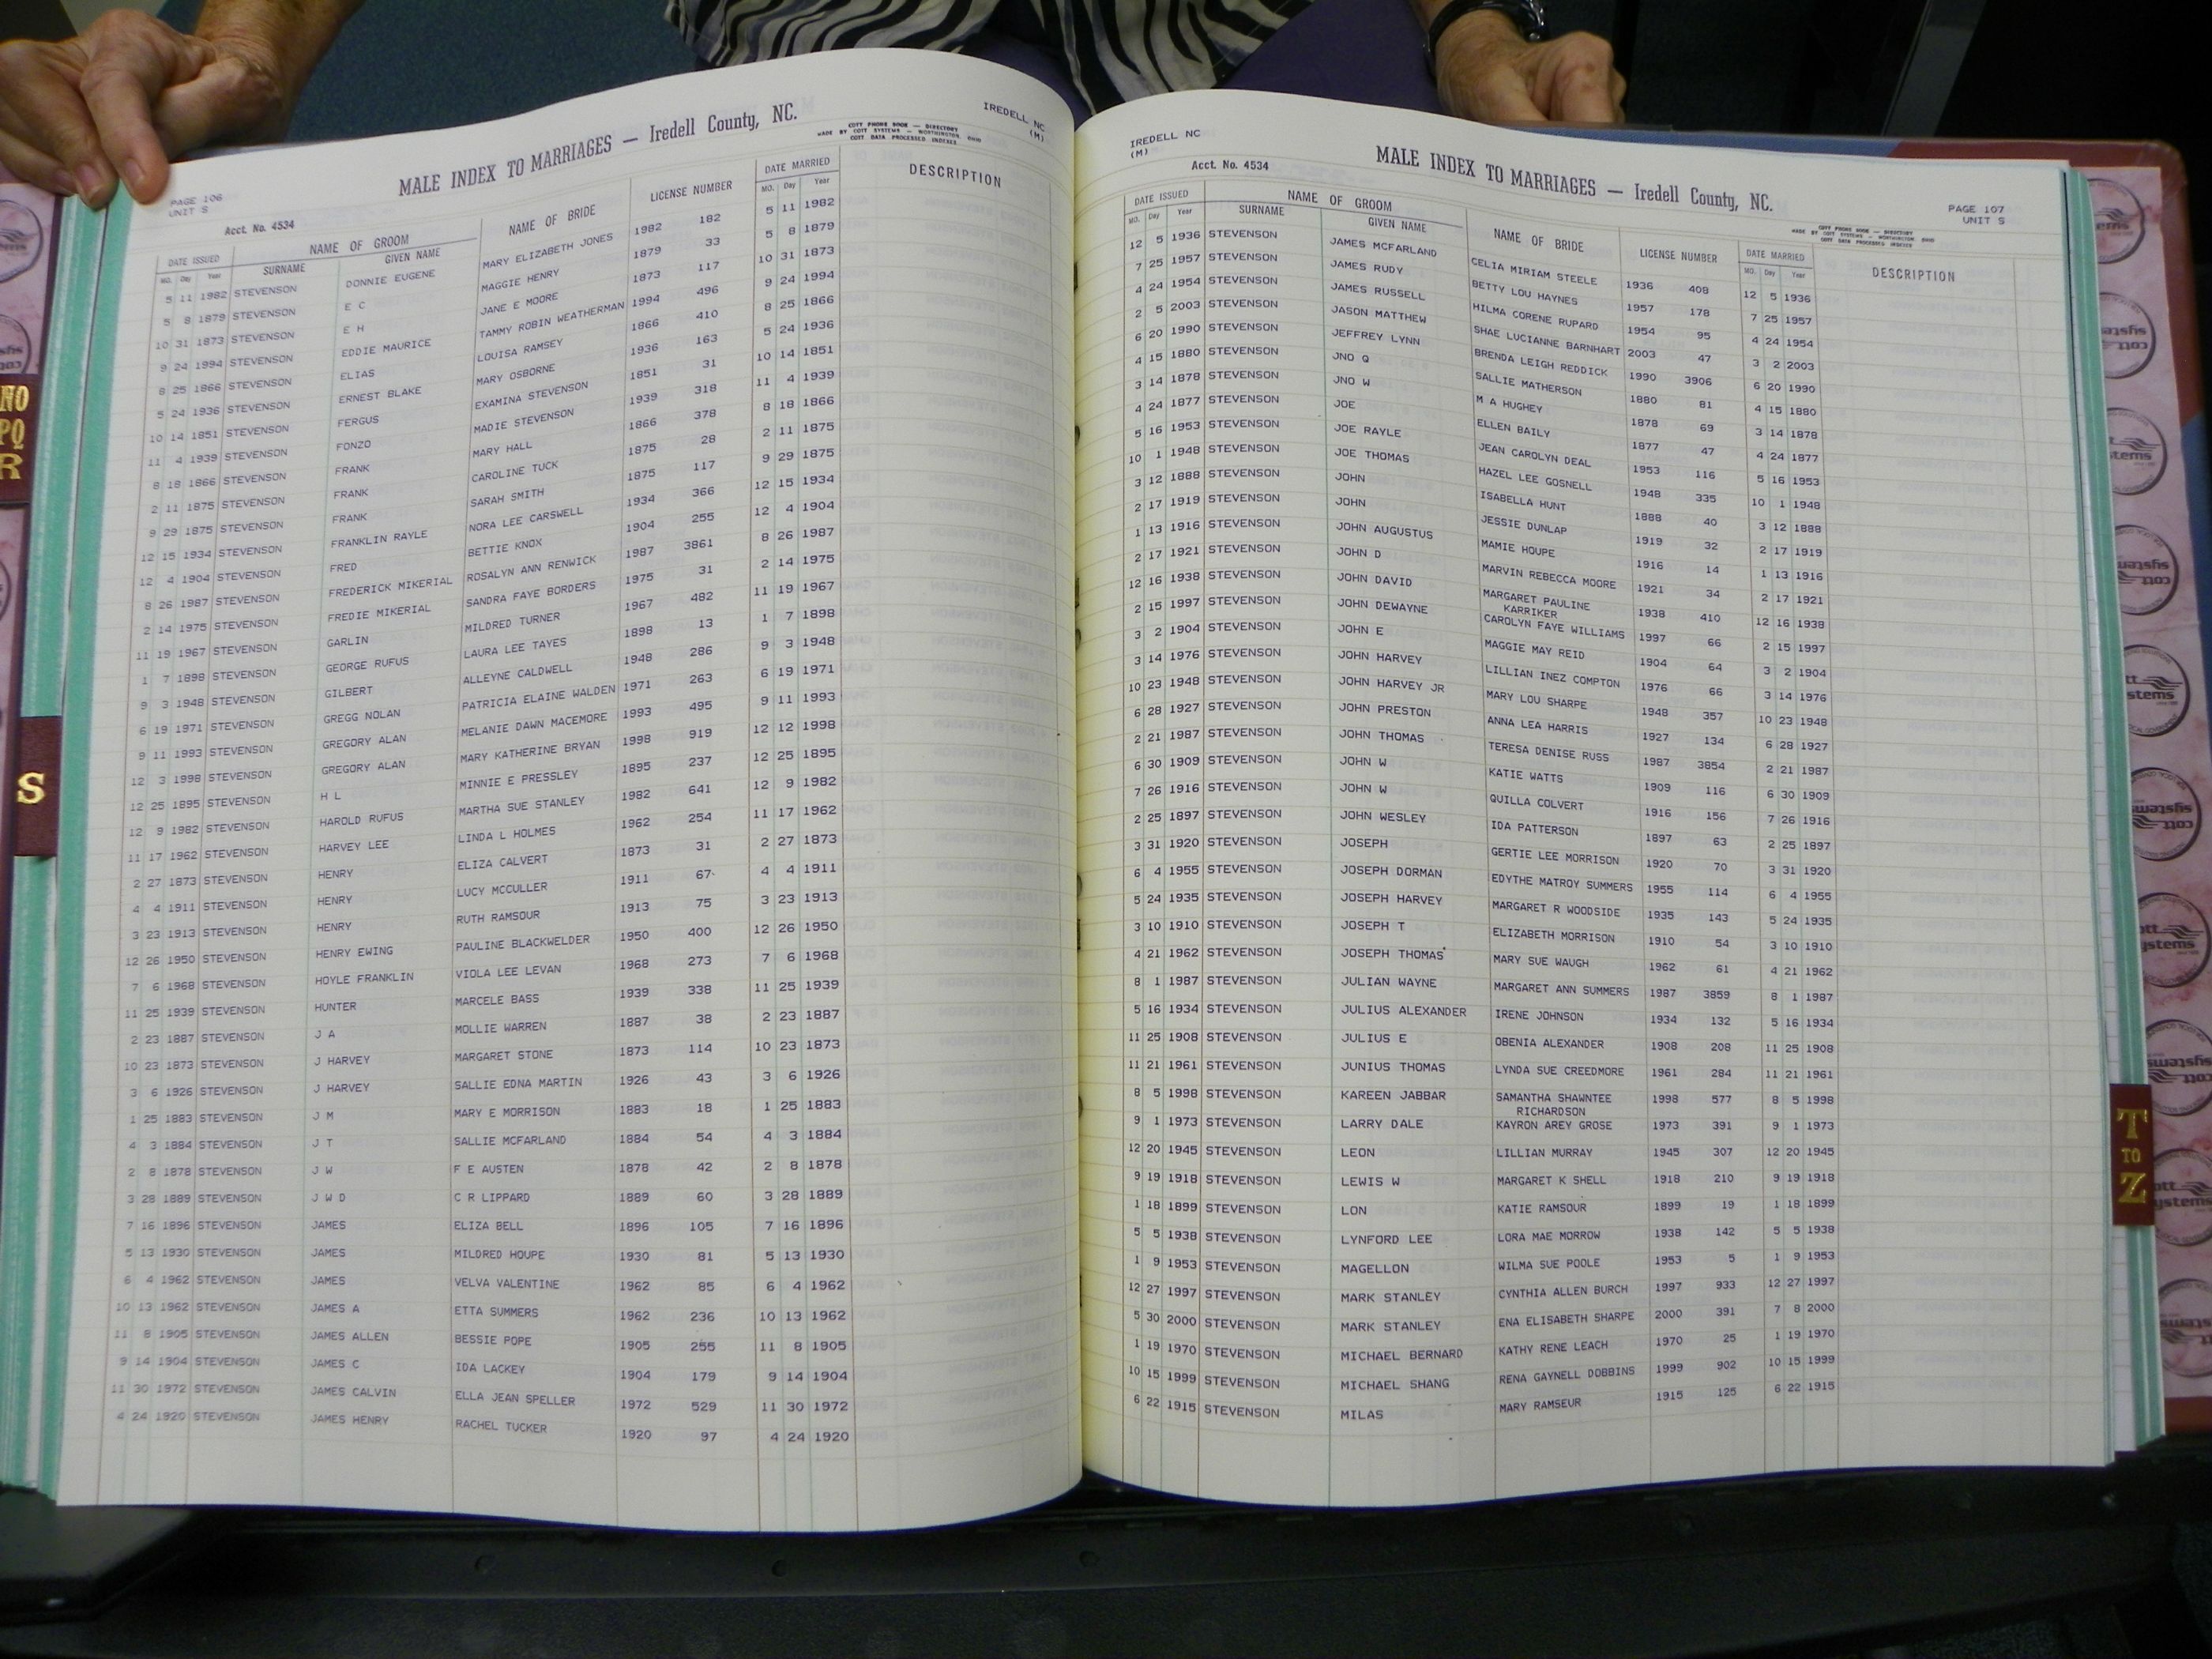 IREDELL NC
(M)
MALE INDEX TO MARRIAGES — Iredell County, NC.
COTT PHONE BOOK — DIRECTORY
MADE BY COTT SYSTEMS — WORTHINGTON, OHIO
COTT DATA PROCESSED INDEXES
PAGE 106
UNIT S
Acct. No. 4534
DATE ISSUED NAME OF GROOM NAME OF BRIDE LICENSE NUMBER DATE MARRIED DESCRIPTION
MO. Day Year SURNAME GIVEN NAME MO. Day Year
5 11 1982 STEVENSON DONNIE EUGENE MARY ELIZABETH JONES 1982 182 5 11 1982
5 8 1879 STEVENSON E C MAGGIE HENRY 1879 33 5 8 1879
10 31 1873 STEVENSON E H JANE E MOORE 1873 117 10 31 1873
9 24 1994 STEVENSON EDDIE MAURICE TAMMY ROBIN WEATHERMAN 1994 496 9 24 1994
8 25 1866 STEVENSON ELIAS LOUISA RAMSEY 1866 410 8 25 1866
5 24 1936 STEVENSON ERNEST BLAKE MARY OSBORNE 1936 163 5 24 1936
10 14 1851 STEVENSON FERGUS EXAMINA STEVENSON 1851 31 10 14 1851
11 4 1939 STEVENSON FONZO MADIE STEVENSON 1939 318 11 4 1939
8 18 1866 STEVENSON FRANK MARY HALL 1866 378 8 18 1866
2 11 1875 STEVENSON FRANK CAROLINE TUCK 1875 28 2 11 1875
9 29 1875 STEVENSON FRANK SARAH SMITH 1875 117 9 29 1875
12 15 1934 STEVENSON FRANKLIN RAYLE NORA LEE CARSWELL 1934 366 12 15 1934
12 4 1904 STEVENSON FRED BETTIE KNOX 1904 255 12 4 1904
8 26 1987 STEVENSON FREDERICK MIKERIAL ROSALYN ANN RENWICK 1987 3861 8 26 1987
2 14 1975 STEVENSON FREDIE MIKERIAL SANDRA FAYE BORDERS 1975 31 2 14 1975
11 19 1967 STEVENSON GARLIN MILDRED TURNER 1967 482 11 19 1967
1 7 1898 STEVENSON GEORGE RUFUS LAURA LEE TAYES 1898 13 1 7 1898
9 3 1948 STEVENSON GILBERT ALLEYNE CALDWELL 1948 286 9 3 1948
6 19 1971 STEVENSON GREGG NOLAN PATRICIA ELAINE WALDEN 1971 263 6 19 1971
9 11 1993 STEVENSON GREGORY ALAN MELANIE DAWN MACEMORE 1993 495 9 11 1993
12 3 1998 STEVENSON GREGORY ALAN MARY KATHERINE BRYAN 1998 919 12 12 1998
12 25 1895 STEVENSON H L MINNIE E PRESSLEY 1895 237 12 25 1895
12 9 1982 STEVENSON HAROLD RUFUS MARTHA SUE STANLEY 1982 641 12 9 1982
11 17 1962 STEVENSON HARVEY LEE LINDA L HOLMES 1962 254 11 17 1962
2 27 1873 STEVENSON HENRY ELIZA CALVERT 1873 31 2 27 1873
4 4 1911 STEVENSON HENRY LUCY MCCULLER 1911 67 4 4 1911
3 23 1913 STEVENSON HENRY RUTH RAMSOUR 1913 75 3 23 1913
12 26 1950 STEVENSON HENRY EWING PAULINE BLACKWELDER 1950 400 12 26 1950
7 6 1968 STEVENSON HOYLE FRANKLIN VIOLA LEE LEVAN 1968 273 7 6 1968
11 25 1939 STEVENSON HUNTER MARCELE BASS 1939 338 11 25 1939
2 23 1887 STEVENSON J A MOLLIE WARREN 1887 38 2 23 1887
10 23 1873 STEVENSON J HARVEY MARGARET STONE 1873 114 10 23 1873
3 6 1926 STEVENSON J HARVEY SALLIE EDNA MARTIN 1926 43 3 6 1926
1 25 1883 STEVENSON J M MARY E MORRISON 1883 18 1 25 1883
4 3 1884 STEVENSON J T SALLIE MCFARLAND 1884 54 4 3 1884
2 8 1878 STEVENSON J W F E AUSTEN 1878 42 2 8 1878
3 28 1889 STEVENSON J W D C R LIPPARD 1889 60 3 28 1889
7 16 1896 STEVENSON JAMES ELIZA BELL 1896 105 7 16 1896
5 13 1930 STEVENSON JAMES MILDRED HOUPE 1930 81 5 13 1930
6 4 1962 STEVENSON JAMES VELVA VALENTINE 1962 85 6 4 1962
10 13 1962 STEVENSON JAMES A ETTA SUMMERS 1962 236 10 13 1962
11 8 1905 STEVENSON JAMES ALLEN BESSIE POPE 1905 255 11 8 1905
9 14 1904 STEVENSON JAMES C IDA LACKEY 1904 179 9 14 1904
11 30 1972 STEVENSON JAMES CALVIN ELLA JEAN SPELLER 1972 529 11 30 1972
4 24 1920 STEVENSON JAMES HENRY RACHEL TUCKER 1920 97 4 24 1920
IREDELL NC
(M)
Acct. No. 4534
MALE INDEX TO MARRIAGES — Iredell County, NC.
PAGE 107
UNIT S
COTT PHONE BOOK — DIRECTORY
MADE BY COTT SYSTEMS — WORTHINGTON, OHIO
COTT DATA PROCESSED INDEXES
DATE ISSUED NAME OF GROOM NAME OF BRIDE LICENSE NUMBER DATE MARRIED DESCRIPTION
MO. Day Year SURNAME GIVEN NAME MO. Day Year
12 5 1936 STEVENSON JAMES MCFARLAND CELIA MIRIAM STEELE 1936 408 12 5 1936
7 25 1957 STEVENSON JAMES RUDY BETTY LOU HAYNES 1957 178 7 25 1957
4 24 1954 STEVENSON JAMES RUSSELL HILMA CORENE RUPARD 1954 95 4 24 1954
2 5 2003 STEVENSON JASON MATTHEW SHAE LUCIANNE BARNHART 2003 47 3 2 2003
6 20 1990 STEVENSON JEFFREY LYNN BRENDA LEIGH REDDICK 1990 3906 6 20 1990
4 15 1880 STEVENSON JNO Q SALLIE MATHERSON 1880 81 4 15 1880
3 14 1878 STEVENSON JNO W M A HUGHEY 1878 69 3 14 1878
4 24 1877 STEVENSON JOE ELLEN BAILY 1877 47 4 24 1877
5 16 1953 STEVENSON JOE RAYLE JEAN CAROLYN DEAL 1953 116 5 16 1953
10 1 1948 STEVENSON JOE THOMAS HAZEL LEE GOSNELL 1948 335 10 1 1948
3 12 1888 STEVENSON JOHN ISABELLA HUNT 1888 40 3 12 1888
2 17 1919 STEVENSON JOHN JESSIE DUNLAP 1919 32 2 17 1919
1 13 1916 STEVENSON JOHN AUGUSTUS MAMIE HOUPE 1916 14 1 13 1916
2 17 1921 STEVENSON JOHN D MARVIN REBECCA MOORE 1921 34 2 17 1921
12 16 1938 STEVENSON JOHN DAVID MARGARET PAULINE 1938 410 12 16 1938
KARRIKER
2 15 1997 STEVENSON JOHN DEWAYNE CAROLYN FAYE WILLIAMS 1997 66 2 15 1997
3 2 1904 STEVENSON JOHN E MAGGIE MAY REID 1904 64 3 2 1904
3 14 1976 STEVENSON JOHN HARVEY LILLIAN INEZ COMPTON 1976 66 3 14 1976
10 23 1948 STEVENSON JOHN HARVEY JR MARY LOU SHARPE 1948 357 10 23 1948
6 28 1927 STEVENSON JOHN PRESTON ANNA LEA HARRIS 1927 134 6 28 1927
2 21 1987 STEVENSON JOHN THOMAS TERESA DENISE RUSS 1987 3854 2 21 1987
6 30 1909 STEVENSON JOHN W KATIE WATTS 1909 116 6 30 1909
7 26 1916 STEVENSON JOHN W QUILLA COLVERT 1916 156 7 26 1916
2 25 1897 STEVENSON JOHN WESLEY IDA PATTERSON 1897 63 2 25 1897
3 31 1920 STEVENSON JOSEPH GERTIE LEE MORRISON 1920 70 3 31 1920
6 4 1955 STEVENSON JOSEPH DORMAN EDYTHE MATROY SUMMERS 1955 114 6 4 1955
5 24 1935 STEVENSON JOSEPH HARVEY MARGARET R WOODSIDE 1935 143 5 24 1935
3 10 1910 STEVENSON JOSEPH T ELIZABETH MORRISON 1910 54 3 10 1910
4 21 1962 STEVENSON JOSEPH THOMAS MARY SUE WAUGH 1962 61 4 21 1962
8 1 1987 STEVENSON JULIAN WAYNE MARGARET ANN SUMMERS 1987 3859 8 1 1987
5 16 1934 STEVENSON JULIUS ALEXANDER IRENE JOHNSON 1934 132 5 16 1934
11 25 1908 STEVENSON JULIUS E OBENIA ALEXANDER 1908 208 11 25 1908
11 21 1961 STEVENSON JUNIUS THOMAS LYNDA SUE CREEDMORE 1961 284 11 21 1961
8 5 1998 STEVENSON KAREEN JABBAR SAMANTHA SHAWNTEE 1998 577 8 5 1998
RICHARDSON
9 1 1973 STEVENSON LARRY DALE KAYRON AREY GROSE 1973 391 9 1 1973
12 20 1945 STEVENSON LEON LILLIAN MURRAY 1945 307 12 20 1945
9 19 1918 STEVENSON LEWIS W MARGARET K SHELL 1918 210 9 19 1918
1 18 1899 STEVENSON LON KATIE RAMSOUR 1899 19 1 18 1899
5 5 1938 STEVENSON LYNFORD LEE LORA MAE MORROW 1938 142 5 5 1938
1 9 1953 STEVENSON MAGELLON WILMA SUE POOLE 1953 5 1 9 1953
12 27 1997 STEVENSON MARK STANLEY CYNTHIA ALLEN BURCH 1997 933 12 27 1997
5 30 2000 STEVENSON MARK STANLEY ENA ELISABETH SHARPE 2000 391 7 8 2000
1 19 1970 STEVENSON MICHAEL BERNARD KATHY RENE LEACH 1970 25 1 19 1970
10 15 1999 STEVENSON MICHAEL SHANG RENA GAYNELL DOBBINS 1999 902 10 15 1999
6 22 1915 STEVENSON MILAS MARY RAMSEUR 1915 125 6 22 1915
NO
PQ
R
S
T
TO
Z
cott
systems